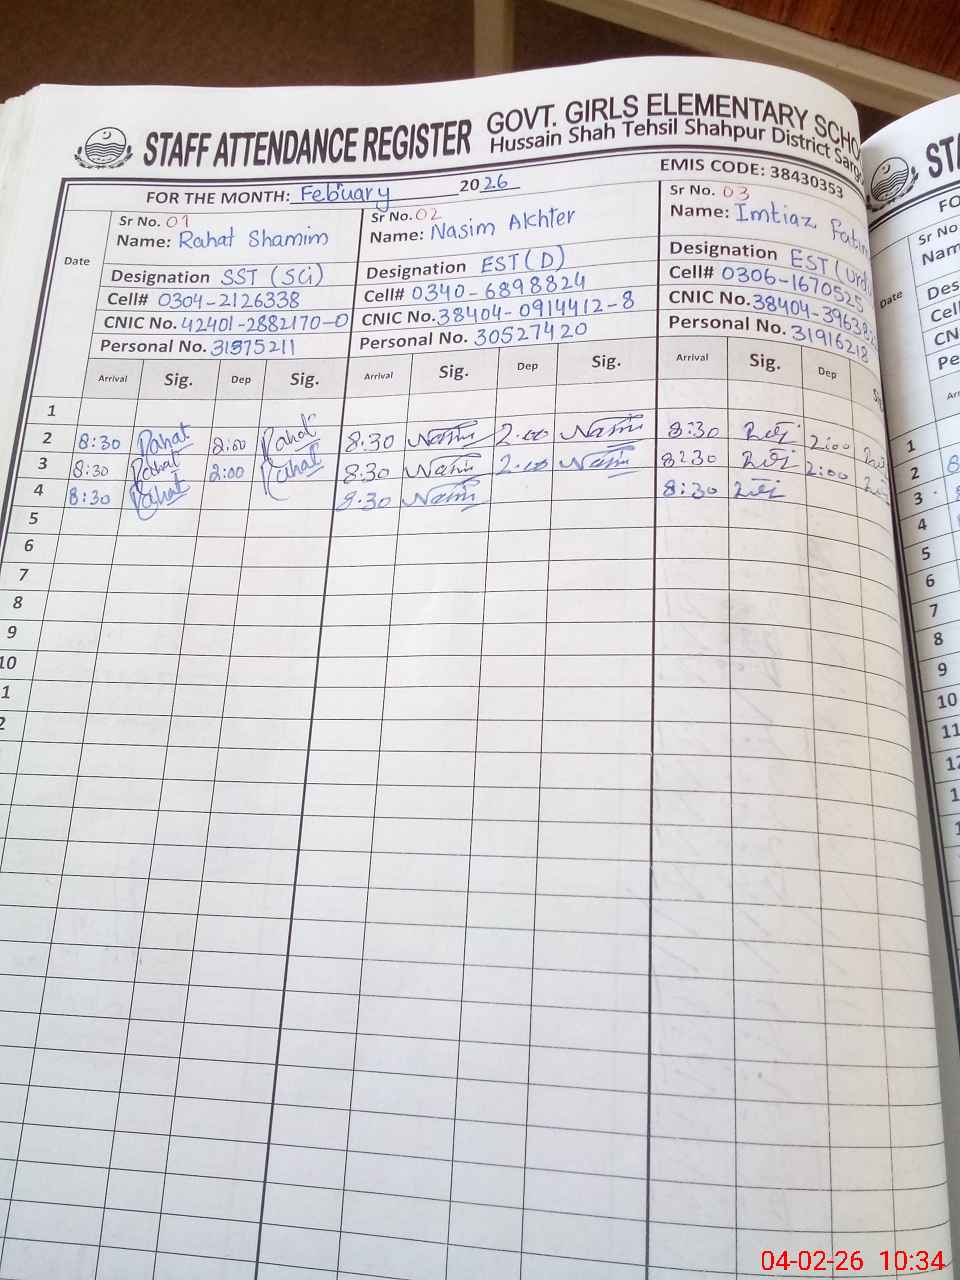 STAFF ATTENDANCE REGISTER GOVT. GIRLS ELEMENTARY SCHO
Hussain Shah Tehsil Shahpur District Sarg
FOR THE MONTH: Febuary 2026 EMIS CODE: 38430353
Date
Sr No. 01
Name: Rahat Shamim
Designation SST (SG)
Cell# 0304-2126338
CNIC No. 42401-2882170-0
Personal No. 31575211
Sr No. 02
Name: Nasim Akhter
Designation EST (D)
Cell# 0340-6898824
CNIC No. 38404-0914412-8
Personal No. 30527420
Sr No. 03
Name: Imtiaz
Designation EST (Urdu
Cell# 0306-1670525
CNIC No. 38404-39638
Personal No. 31916218
Arrival Sig. Dep Sig. Arrival Sig. Dep Sig. Arrival Sig. Dep
1
2 8:30 Rahat 2:00 Rahat 8:30 Nasim 2:00 Nasim 8:30 2:00
3 8:30 Rahat 2:00 Rahat 8:30 Nasim 2:00 Nasim 8:30 2:00
4 8:30 Rahat 8:30 Nasim 8:30
5
6
7
8
9
10
1
2
ST
FO
Sr No
Nam
Des
Cell
CN
Pe
Date
Arr
1
2 8
3
4
5
6
7
8
9
10
11
12
1
1
04-02-26 10:34